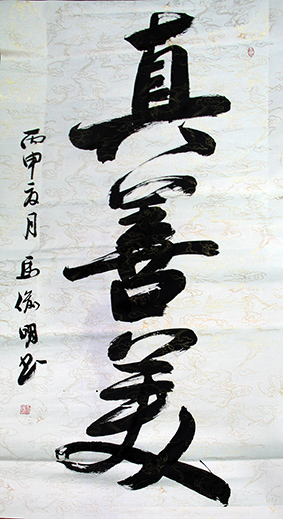 真善美
丙申夏月 馬 明书